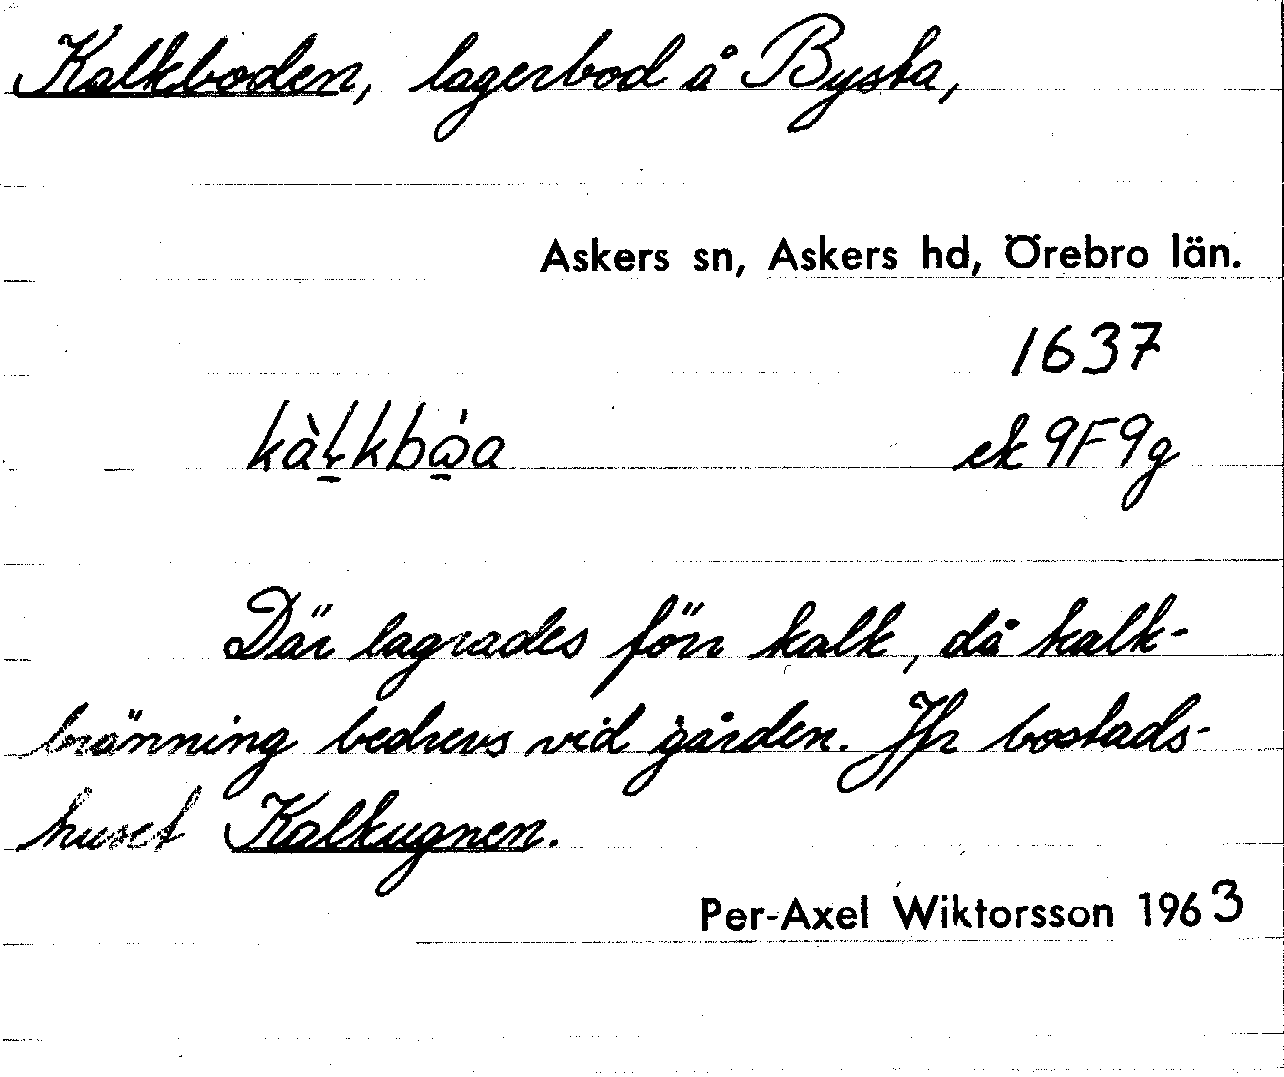 Kalkboden, lagerbod å Bysta,
Askers sn, Askers hd, Örebro län.
1637
kàḻkbὼ̱a
ek 9F9g
Där lagrades förr kalk, då kalk-
bränning bedrevs vid gården. Jfr bostads-
huset Kalkugnen.
Per-Axel Wiktorsson 1963